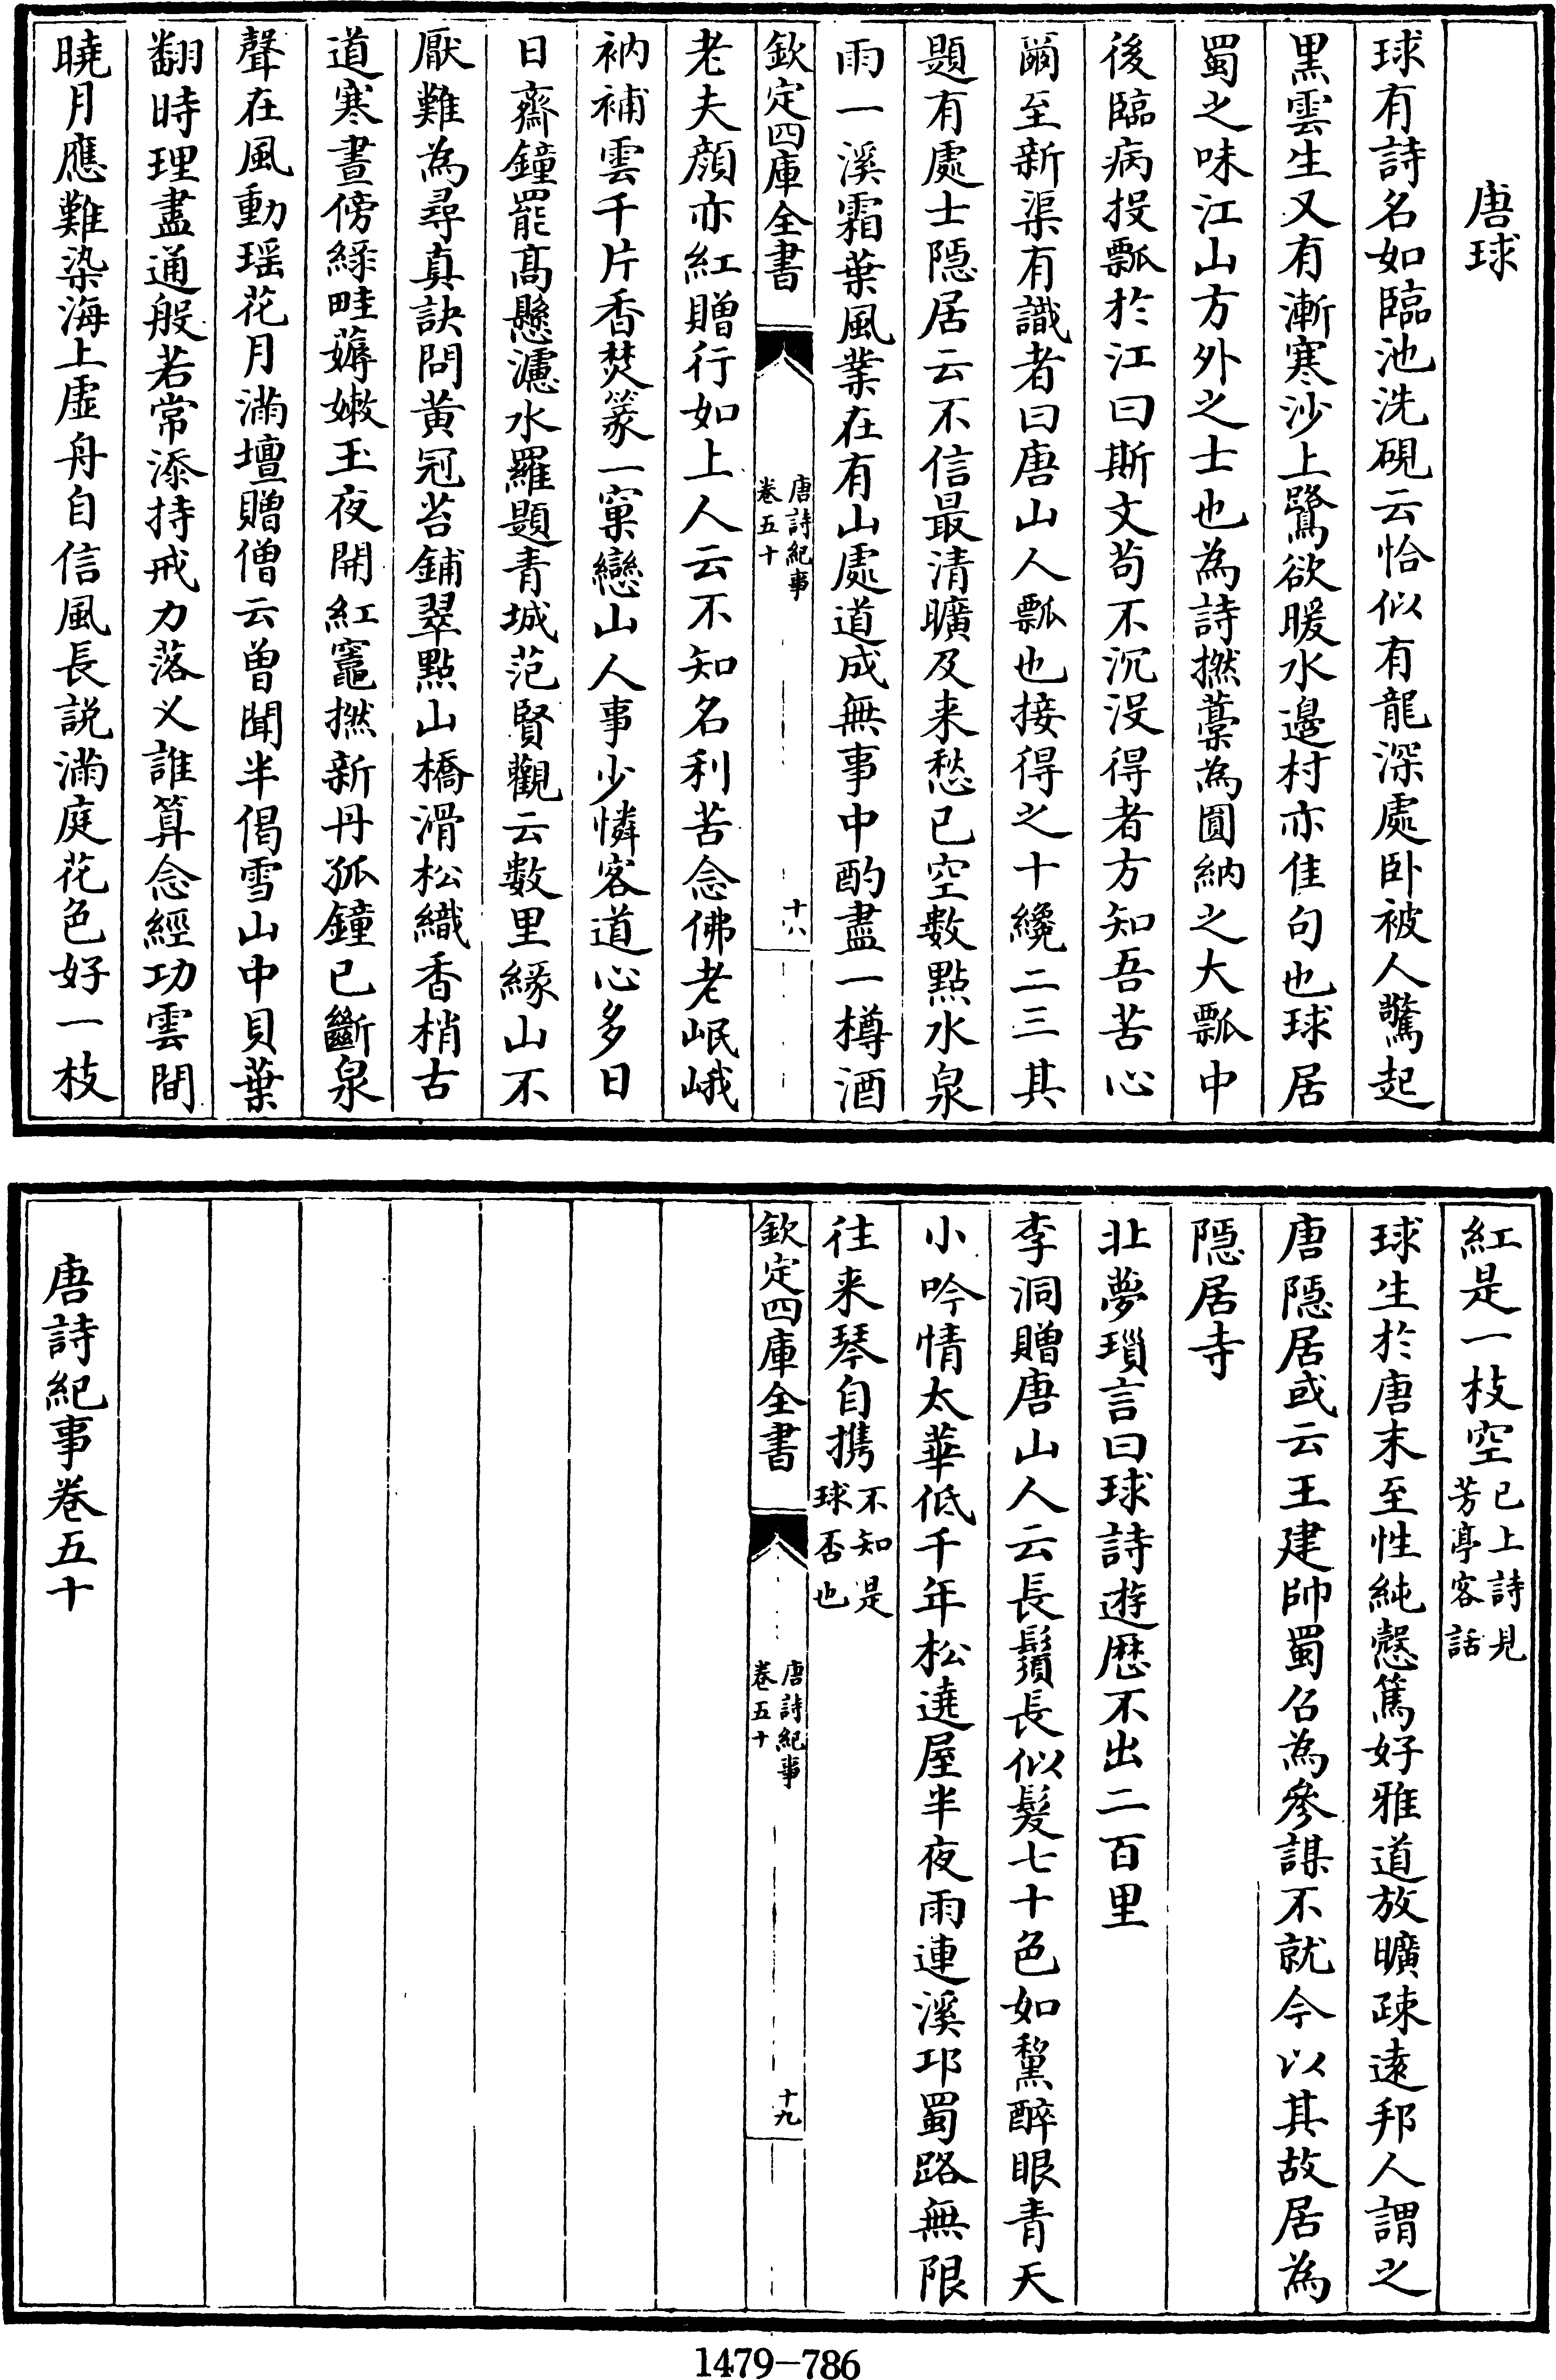 唐球
球有詩名如臨池洗硯云恰似有龍深處卧被人驚起
黒雲生又有漸寒沙上鷺欲暖水邉村亦佳句也球居
蜀之味江山方外之士也為詩撚藁為圓納之大瓢中
後臨病投瓢於江曰斯文茍不沉没得者方知吾苦心
爾至新渠有識者曰唐山人瓢也接得之十纔二三其
題有處士隠居云不信最清曠及来愁已空數點水泉
雨一溪霜葉風業在有山處道成無事中酌盡一樽酒
欽定四庫全書
唐詩紀事
卷五十
十八
老夫顔亦紅贈行如上人云不知名利苦念佛老岷峨
衲補雲千片香焚篆一窠戀山人事少憐客道心多日
日齋鐘罷髙懸濾水羅題青城范賢觀云數里緣山不
厭難為尋真訣問黄冠苔鋪翠㸃山橋滑松織香梢古
道寒晝傍緑畦薅嫩玉夜開紅竈撚新丹孤鐘已斷泉
聲在風動瑶花月滿壇贈僧云曽聞半偈雪山中貝葉
翻時理盡通般若常添持戒力落义誰算念經功雲間
曉月應難染海上虚舟自信風長説滿庭花色好一枝
紅是一枝空已上詩見
芳亭客話
球生於唐末至性純慤篤好雅道放曠疎逺邦人謂之
唐隠居或云王建帥蜀召為參謀不就今以其故居為
隠居寺
北夢瑣言曰球詩遊歴不出二百里
李洞贈唐山人云長鬚長似髮七十色如黧醉眼青天
小吟情太華低千年松遶屋半夜雨連溪邛蜀路無限
往来琴自携不知是
球否也
欽定四庫全書
唐詩紀事
卷五十
十九
唐詩紀事卷五十
1479-786